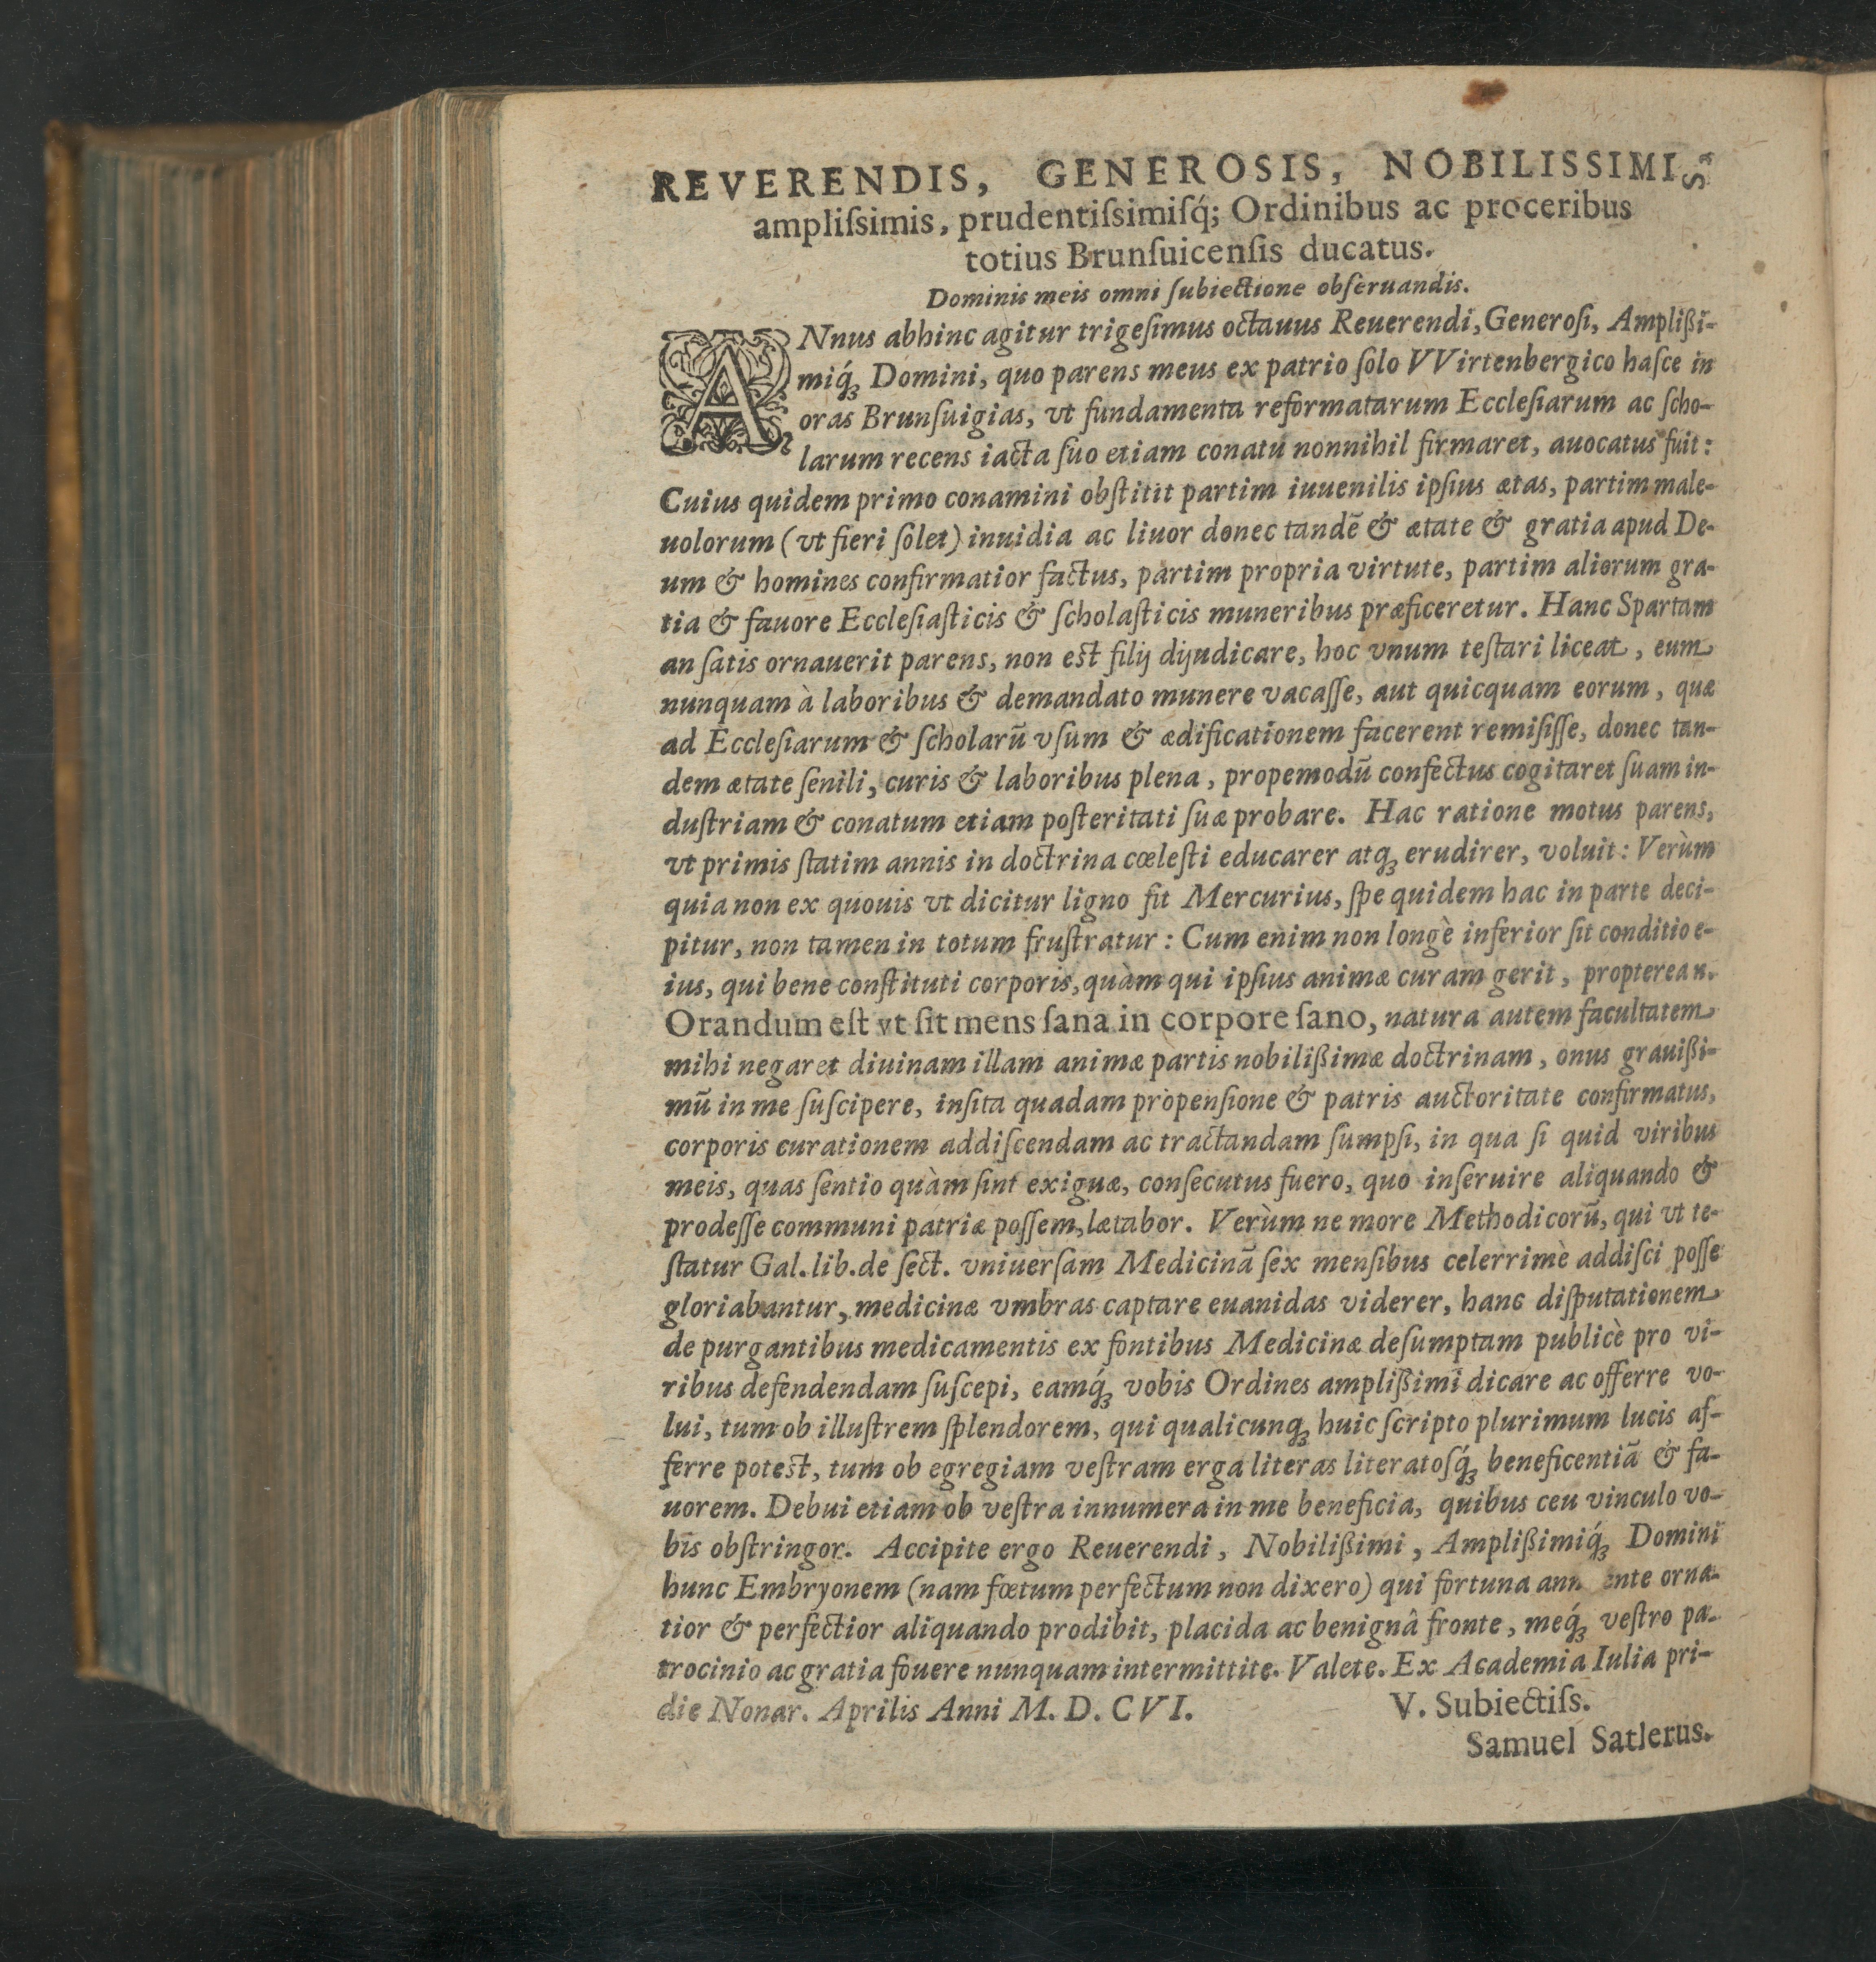 REVERENDIS, GENEROSIS, NOBILISSIMIS
ampliſsimis, prudentiſsimiſq́; Ordinibus ac proceribus
totius Brunſuicenſis ducatus.
Dominis meis omni ſubiectione obſeruandis.
ANnus abhinc agitur trigeſimus octauus Reuerendi, Generoſi, Amplißi-
miq́ꝫ Domini, quo parens meus ex patrio ſolo VVirtenbergico haſce in
oras Brunſuigias, vt fundamenta reformatarum Eccleſiarum ac ſcho-
larum recens iacta ſuo etiam conatu nonnihil firmaret, auocatus fuit:
Cuius quidem primo conamini obſtitit partim iuuenilis ipſius ætas, partim male-
uolorum (vt fieri ſolet) inuidia ac liuor donec tandẽ & ætate & gratia apud De-
um & homines confirmatior factus, partim propria virtute, partim aliorum gra-
tia & fauore Eccleſiaſticis & ſcholaſticis muneribus præficeretur. Hanc Spartam
an ſatis ornauerit parens, non est filij dijudicare, hoc vnum teſtari liceat, eum
nunquam à laboribus & demandato munere vacaſſe, aut quicquam eorum, quæ
ad Eccleſiarum & ſcholarũ vſum & ædificationem facerent remiſiſſe, donec tan-
dem ætate ſenili, curis & laboribus plena, propemodũ confectus cogitaret ſuam in-
duſtriam & conatum etiam poſteritati ſuæ probare. Hac ratione motus parens,
vt primis ſtatim annis in doctrina cœleſti educarer atqꝫ erudirer, voluit: Verùm
quia non ex quouis vt dicitur ligno fit Mercurius, ſpe quidem hac in parte deci-
pitur, non tamen in totum fruſtratur: Cum enim non longè inferior ſit conditio e-
ius, qui bene conſtituti corporis, quàm qui ipſius animæ curam gerit, propterea n.
Orandum eſt vt ſit mens ſana in corpore ſano, natura autem facultatem
mihi negaret diuinam illam animæ partis nobilißimæ doctrinam, onus grauißi-
mũ in me ſuſcipere, inſita quadam propenſione & patris auctoritate confirmatus,
corporis curationem addiſcendam ac tractandam ſumpſi, in qua ſi quid viribus
meis, quas ſentio quàm ſint exiguæ, conſecutus fuero, quo inſeruire aliquando &
prodeſſe communi patriæ poſſem, lætabor. Verùm ne more Methodicorũ, qui vt te-
ſtatur Gal. lib. de ſect. vniuerſam Medicinã ſex menſibus celerrimè addiſci poſſe
gloriabantur, medicinæ vmbras captare euanidas viderer, hanc diſputationem
de purgantibus medicamentis ex fontibus Medicinæ deſumptam publicè pro vi-
ribus defendendam ſuſcepi, eamq́ꝫ vobis Ordines amplißimi dicare ac offerre vo-
lui, tum ob illuſtrem ſplendorem, qui qualicunqꝫ huic ſcripto plurimum lucis af-
ferre potest, tum ob egregiam veſtram erga literas literatoſq́ꝫ beneficentiã & fa-
uorem. Debui etiam ob veſtra innumera in me beneficia, quibus ceu vinculo vo-
bis obſtringor. Accipite ergo Reuerendi, Nobilißimi, Amplißimiq́ꝫ Domini
hunc Embryonem (nam fœtum perfectum non dixero) qui fortuna ann ente orna-
tior & perfectior aliquando prodibit, placida ac benignâ fronte, meq́ꝫ veſtro pa-
trocinio ac gratia fouere nunquam intermittite. Valete. Ex Academia Iulia pri-
die Nonar. Aprilis Anni M. D. CVI.
V. Subiectiſs.
Samuel Satlerus.